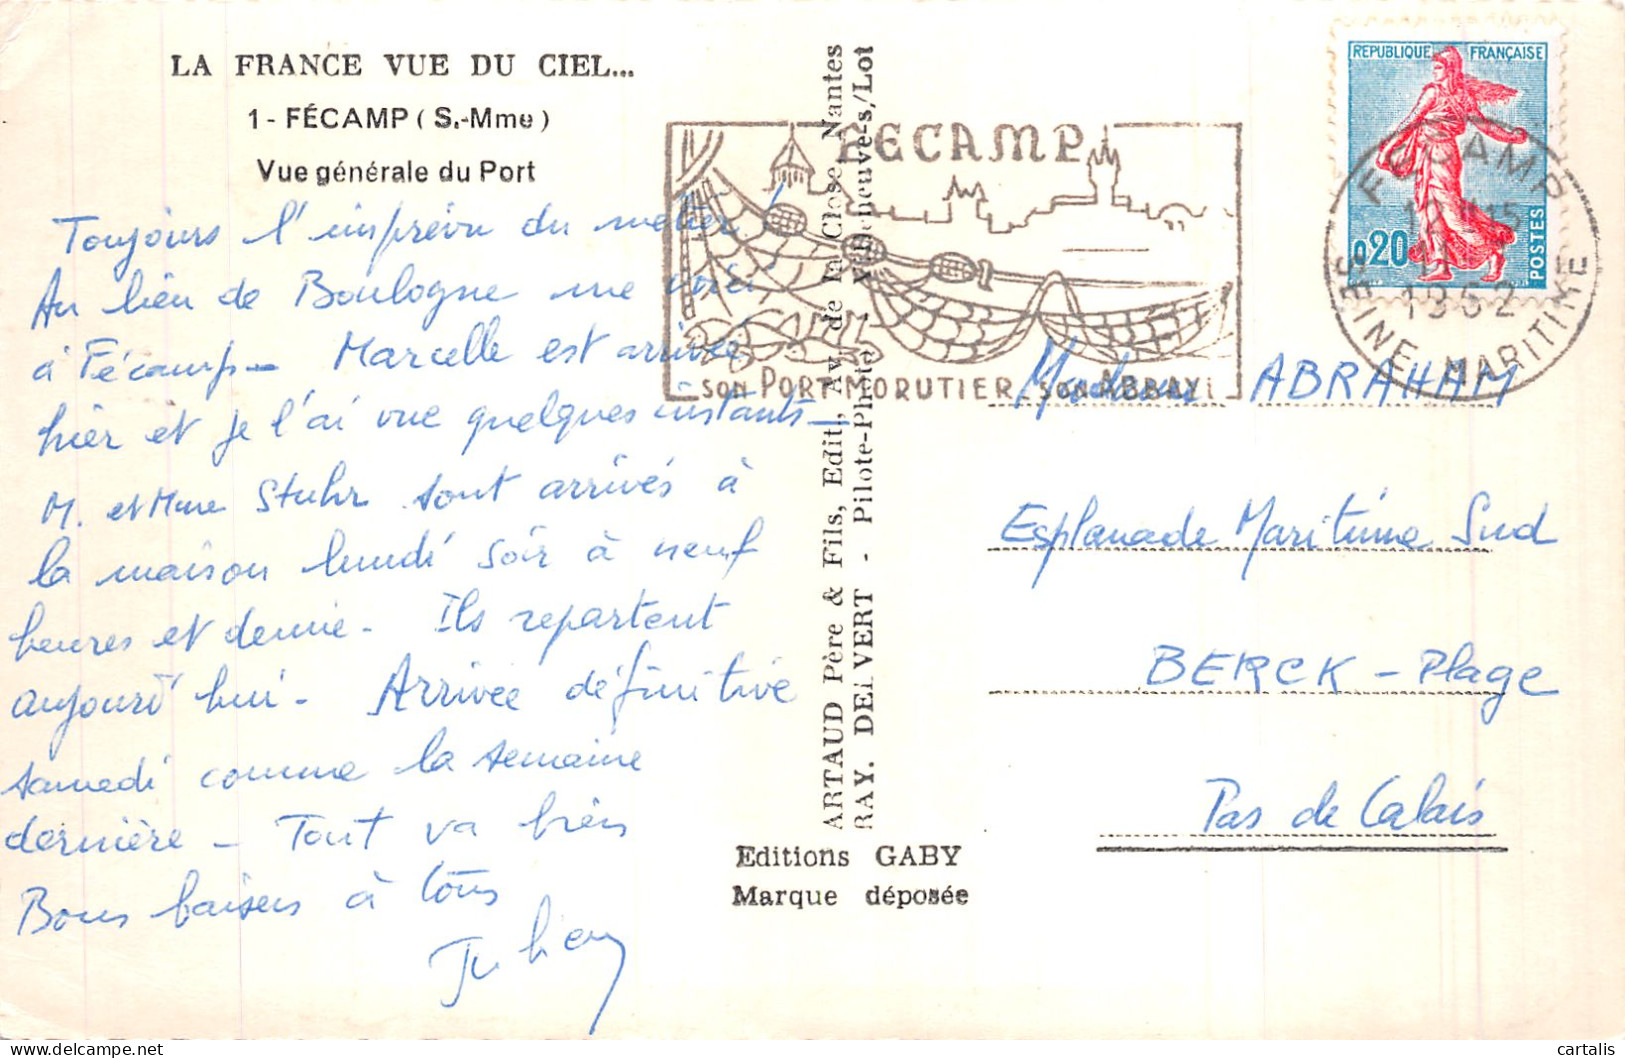 LA FRANCE VUE DU CIEL...
1 - FÉCAMP ( S.-Mme )
Vue générale du Port
Toujours l'imprévu du métier !
Au lieu de Boulogne me voici
à Fécamp - Marcelle est arrivée
hier et je l'ai vue quelques instants -
M. et Mme Stuhr sont arrivés à
la maison lundi soir à neuf
heures et demie - Ils repartent
aujourd'hui - Arrivée définitive
samedi comme la semaine
dernière - Tout va bien
Bons baisers à tous
ARTAUD Père & Fils, Edit., Av. de la Close, Nantes
RAY. DELVERT - Pilote-Photo - Villeneuve-s/Lot
Editions GABY
Marque déposée
FECAMP
SON PORT MORUTIER SON ABBAYE
REPUBLIQUE FRANÇAISE
0,20
POSTES
FECAMP
1962
SEINE MARITIME
Madame ABRAHAM
Esplanade Maritime Sud
BERCK - Plage
Pas de Calais
cartalis